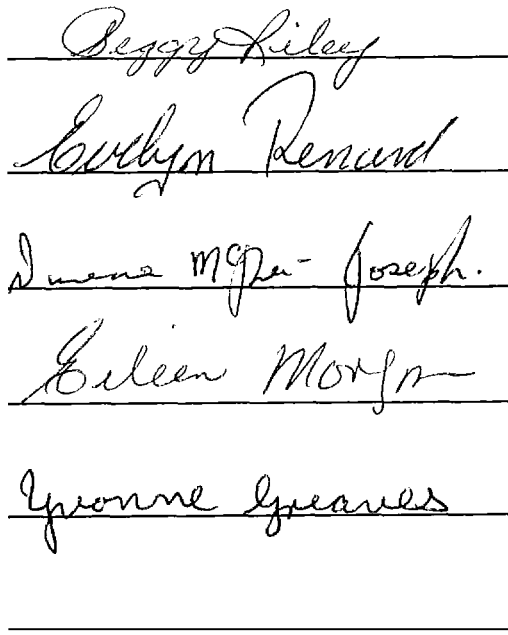 Peggy Riley
Evelyn Renard
Joseph.
Eileen Morgan
Yvonne Greaves